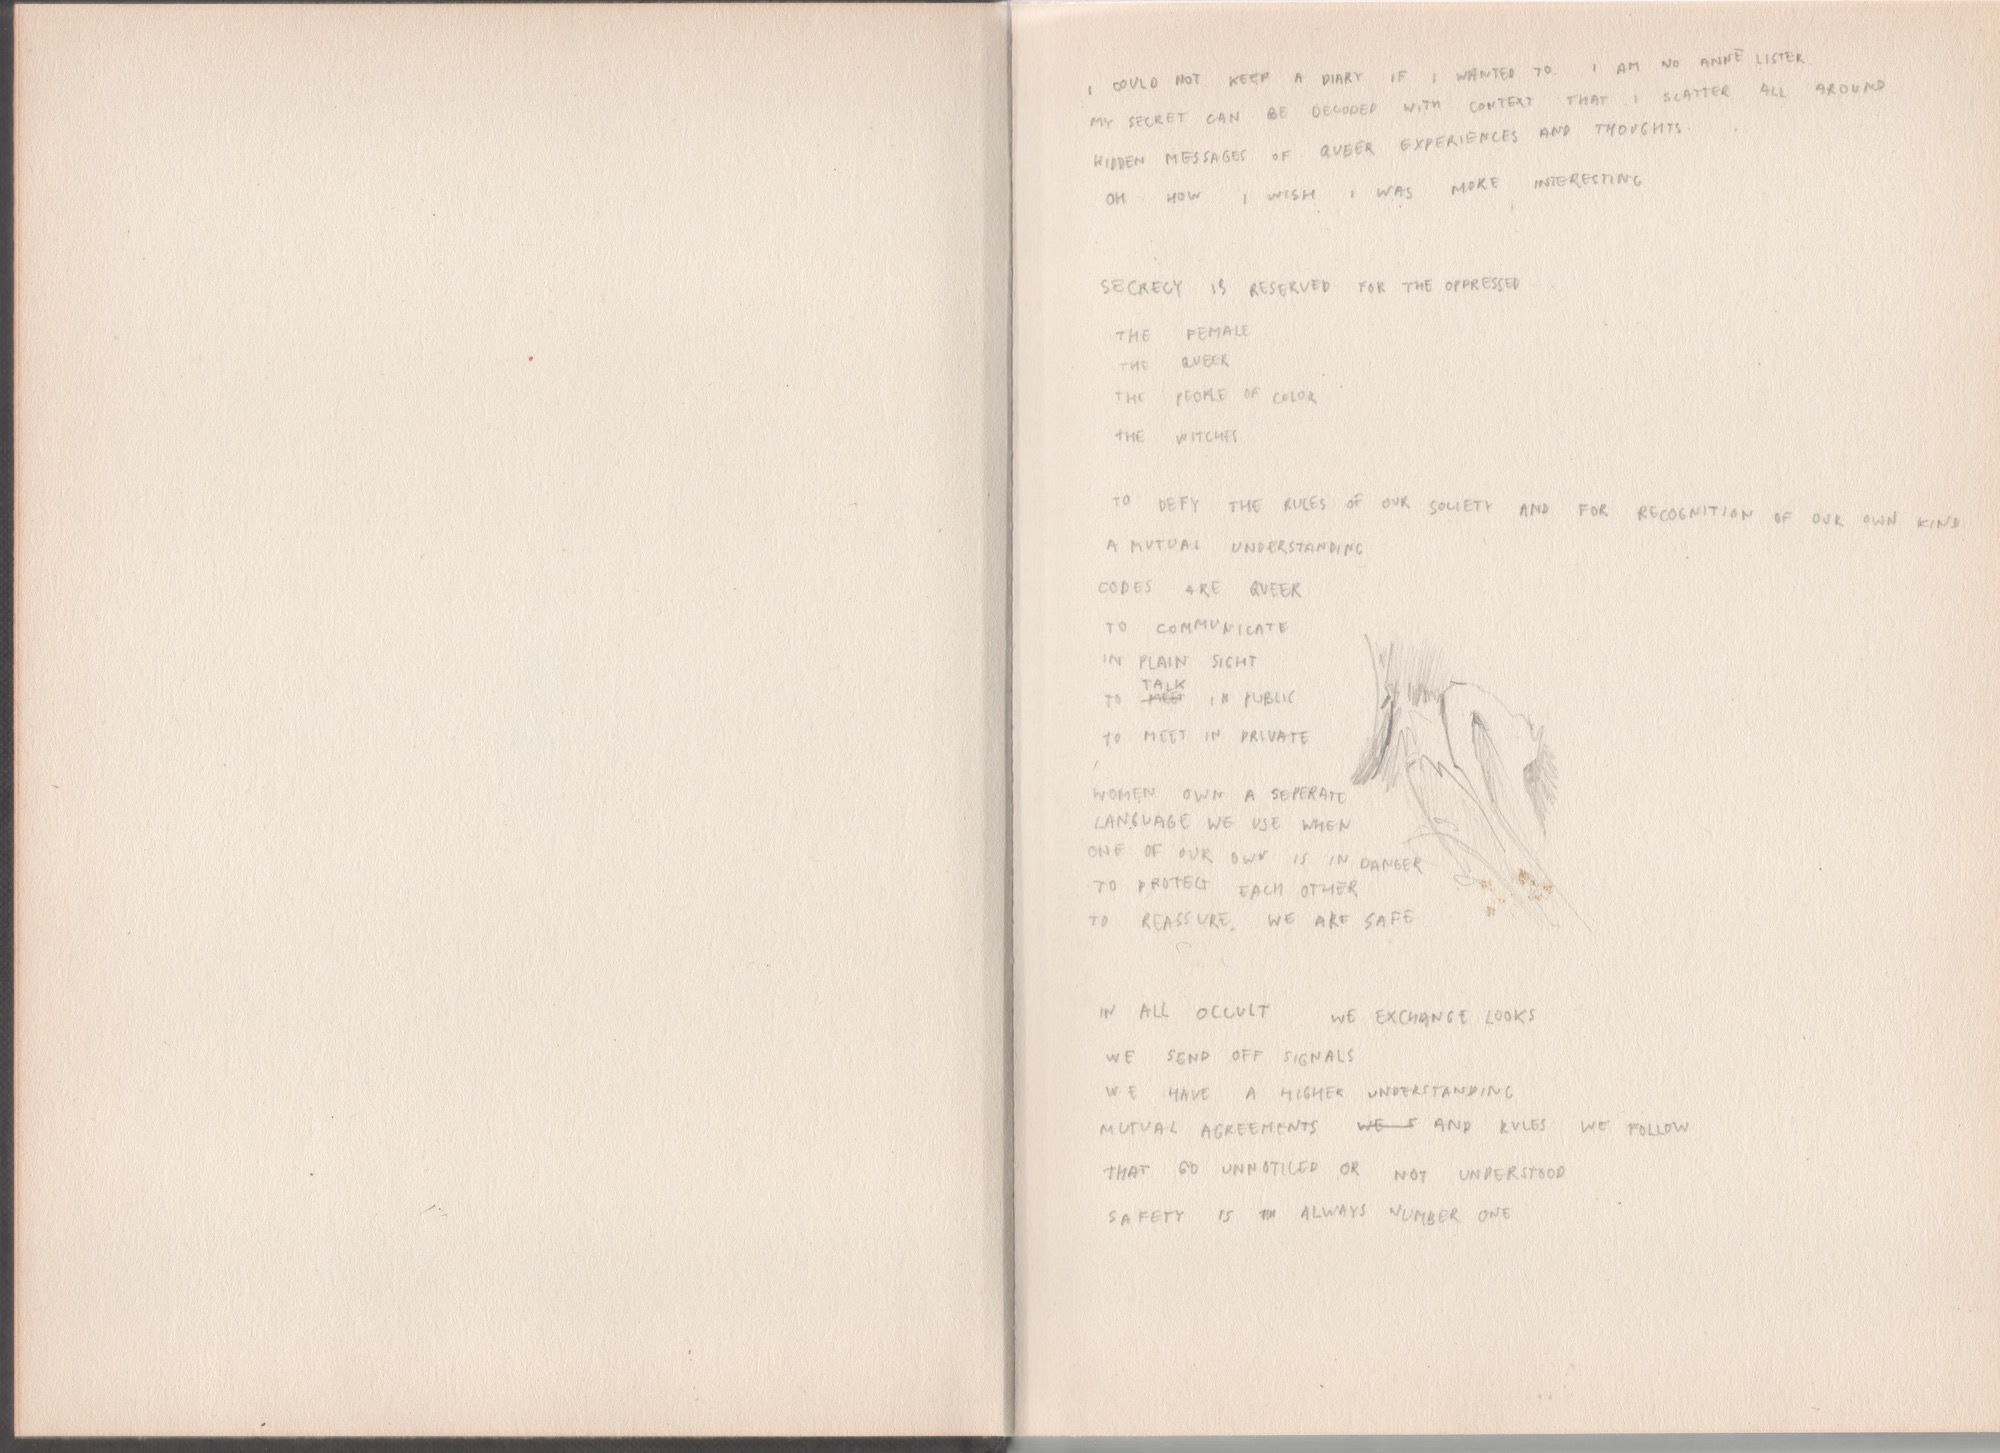 I COULD NOT KEEP A DIARY IF I WANTED TO. I AM NO ANNE LISTER
MY SECRET CAN BE DECODED WITH CONTEXT THAT I SCATTER ALL AROUND
HIDDEN MESSAGES OF QUEER EXPERIENCES AND THOUGHTS.
OH HOW I WISH I WAS MORE INTERESTING
SECRECY IS RESERVED FOR THE OPPRESSED
THE FEMALE
THE QUEER
THE PEOPLE OF COLOR
THE WITCHES
TO DEFY THE RULES OF OUR SOCIETY AND FOR RECOGNITION OF OUR OWN KIND
A MUTUAL UNDERSTANDING
CODES ARE QUEER
TO COMMUNICATE
IN PLAIN SIGHT
TALK
TO MEET IN PUBLIC
TO MEET IN PRIVATE
WOMEN OWN A SEPERATE
LANGUAGE WE USE WHEN
ONE OF OUR OWN IS IN DANGER
TO PROTECT EACH OTHER
TO REASSURE. WE ARE SAFE
IN ALL OCCULT WE EXCHANGE LOOKS
WE SEND OFF SIGNALS
WE HAVE A HIGHER UNDERSTANDING
MUTUAL AGREEMENTS WE AND RULES WE FOLLOW
THAT GO UNNOTICED OR NOT UNDERSTOOD
SAFETY IS ALWAYS NUMBER ONE